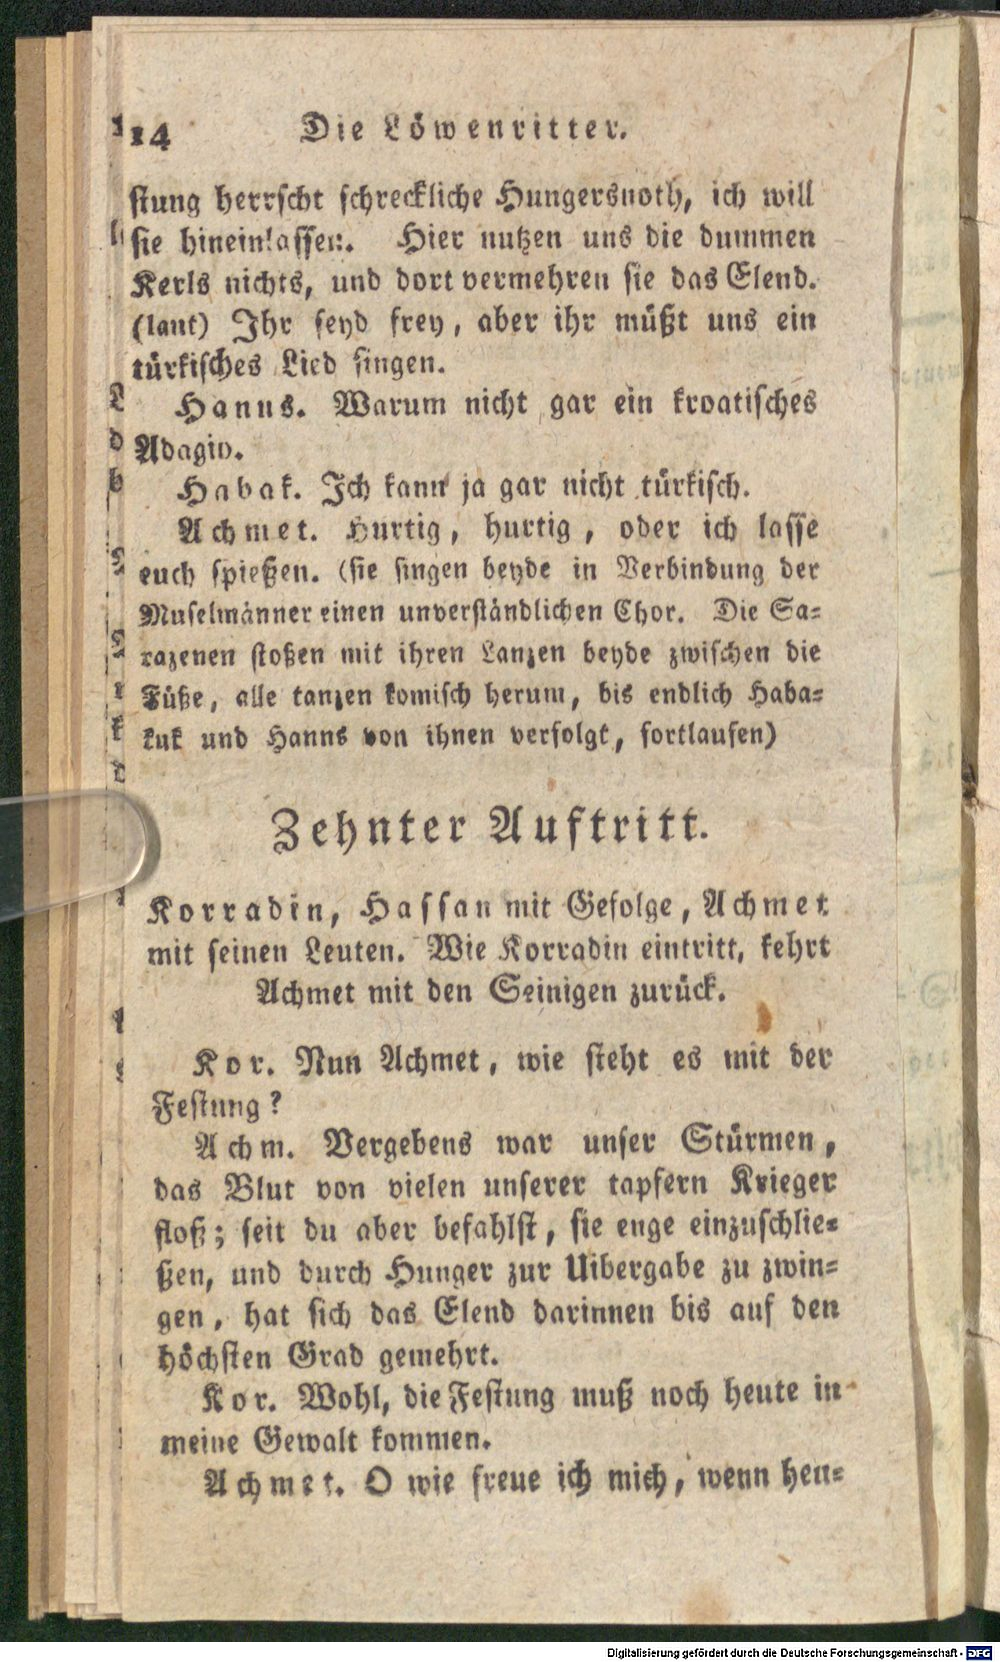 114 Die Löwenritter.
stung herrscht schreckliche Hungersnoth, ich will
sie hineinlassen. Hier nutzen uns die dummen
Kerls nichts, und dort vermehren sie das Elend.
(laut) Ihr seyd frey, aber ihr müßt uns ein
türkisches Lied singen.
Hanns. Warum nicht gar ein kroatisches
Adagio.
Habak. Ich kann ja gar nicht türkisch.
Achmet. Hurtig, hurtig, oder ich lasse
euch spießen. (sie singen beyde in Verbindung der
Muselmänner einen unverständlichen Chor. Die Sa=
razenen stoßen mit ihren Lanzen beyde zwischen die
Füße, alle tanzen komisch herum, bis endlich Haba=
kuk und Hanns von ihnen verfolgt, fortlaufen)
Zehnter Auftritt.
Korradin, Hassan mit Gefolge, Achmet
mit seinen Leuten. Wie Korradin eintritt, kehrt
Achmet mit den Seinigen zurück.
Kor. Nun Achmet, wie steht es mit der
Festung?
Achm. Vergebens war unser Stürmen,
das Blut von vielen unserer tapfern Krieger
floß; seit du aber befahlst, sie enge einzuschlie=
ßen, und durch Hunger zur Uibergabe zu zwin=
gen, hat sich das Elend darinnen bis auf den
höchsten Grad gemehrt.
Kor. Wohl, die Festung muß noch heute in
meine Gewalt kommen.
Achmet. O wie freue ich mich, wenn heu=
Digitalisierung gefördert durch die Deutsche Forschungsgemeinschaft - DFG